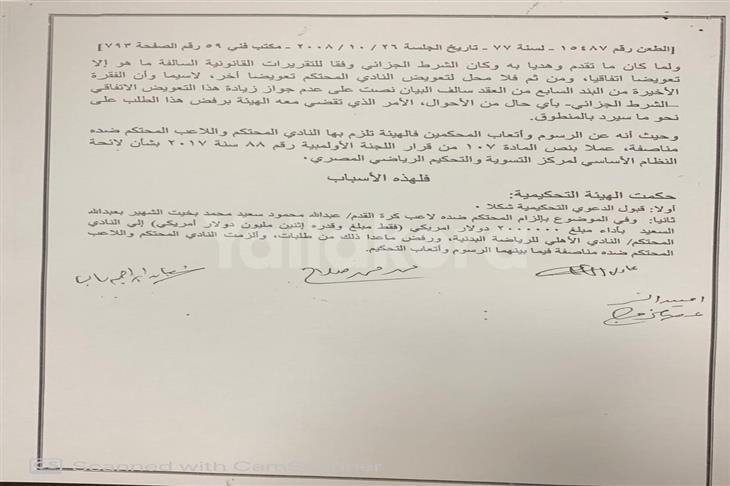 [الطعن رقم ١٥٤٨٧ - لسنة ٧٧ - تاريخ الجلسة ٢٦ / ١٠ / ٢٠٠٨ - مكتب فني ٥٩ رقم الصفحة ٧٩٣]
ولما كان ما تقدم وهديا به وكان الشرط الجزائي وفقا للتقريرات القانونية السالفة ما هو إلا
تعويضا اتفاقيا، ومن ثم فلا محل لتعويض النادي المحتكم تعويضا آخر، لاسيما وأن الفقرة
الأخيرة من البند السابع من العقد سالف البيان نصت على عدم جواز زيادة هذا التعويض الاتفاقي
–الشرط الجزئي- بأي حال من الأحوال، الأمر الذي تقضي معه الهيئة برفض هذا الطلب على
نحو ما سيرد بالمنطوق.
وحيث أنه عن الرسوم وأتعاب المحكمين فالهيئة تلزم بها النادي المحتكم واللاعب المحتكم ضده
مناصفة، عملا بنص المادة ١٠٧ من قرار اللجنة الأولمبية رقم ٨٨ سنة ٢٠١٧ بشأن لائحة
النظام الأساسي لمركز التسوية والتحكيم الرياضي المصري.
فلهذه الأسباب
حكمت الهيئة التحكيمية:
أولا: قبول الدعوي التحكيمية شكلا .
ثانيا: وفي الموضوع بإلزام المحتكم ضده لاعب كرة القدم/ عبدالله محمود سعيد محمد بخيت الشهير بعبدالله
السعيد بأداء مبلغ ٢٠٠٠٠٠٠ دولار امريكي (فقط مبلغ وقدره إثنين مليون دولار أمريكي) إلي النادي
المحتكم/ النادي الأهلي للرياضة البدنية، ورفض ماعدا ذلك من طلبات، وألزمت النادي المحتكم واللاعب
المحتكم ضده مناصفة فيما بينهما الرسوم وأتعاب التحكيم.
محمد صلاح
CS Scanned with CamScanner